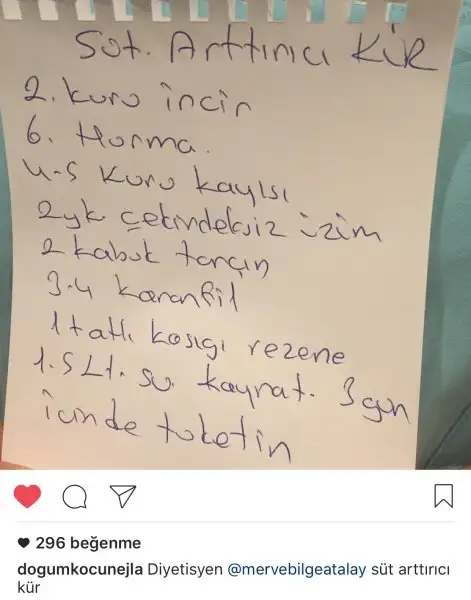 Süt. Arttırıcı KÜR
2. kuru incir
6. Hurma.
4-5 Kuru kayısı
2yk çekirdeksiz üzüm
2 kabuk tarçın
3-4 karanfil
1 tatlı kaşığı rezene
1.5 Lt. su kaynat. 3 gün
içinde tüketin
296 beğenme
dogumkocunejla Diyetisyen @mervebilgeatalay süt arttırıcı
kür